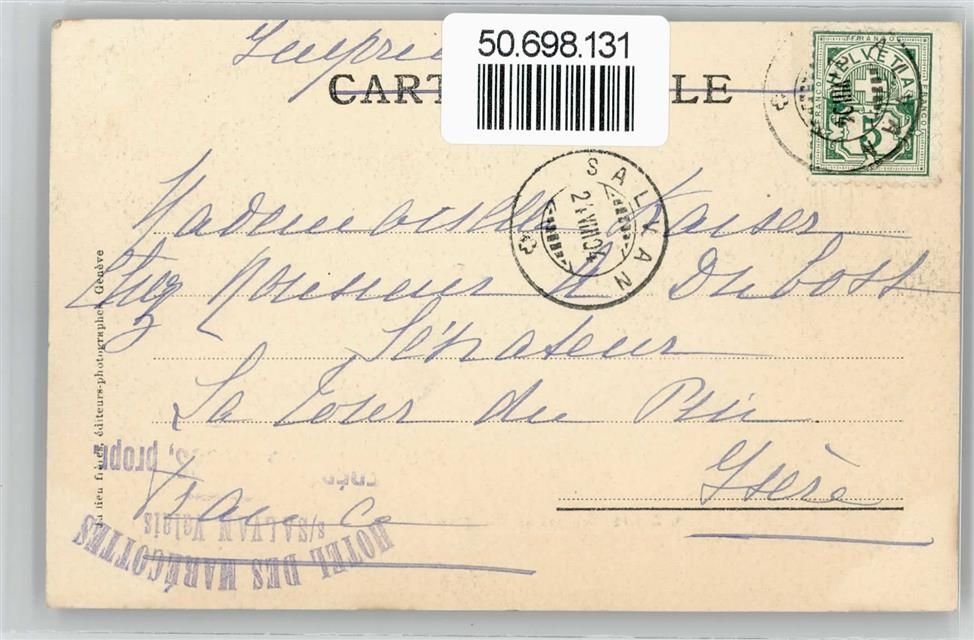 50.698.131
Imprimé
CARTE POSTALE
HELVETIA
FRANCO
5
SALVAN
Mademoiselle Kaiser
Chez Monsieur A Dubost
Sénateur
La Tour du Pin
Isère
France
Jullien frères, éditeurs-photographes Genève
HOTEL DES MARÉCOTTES
s/SALVAN Valais
propr